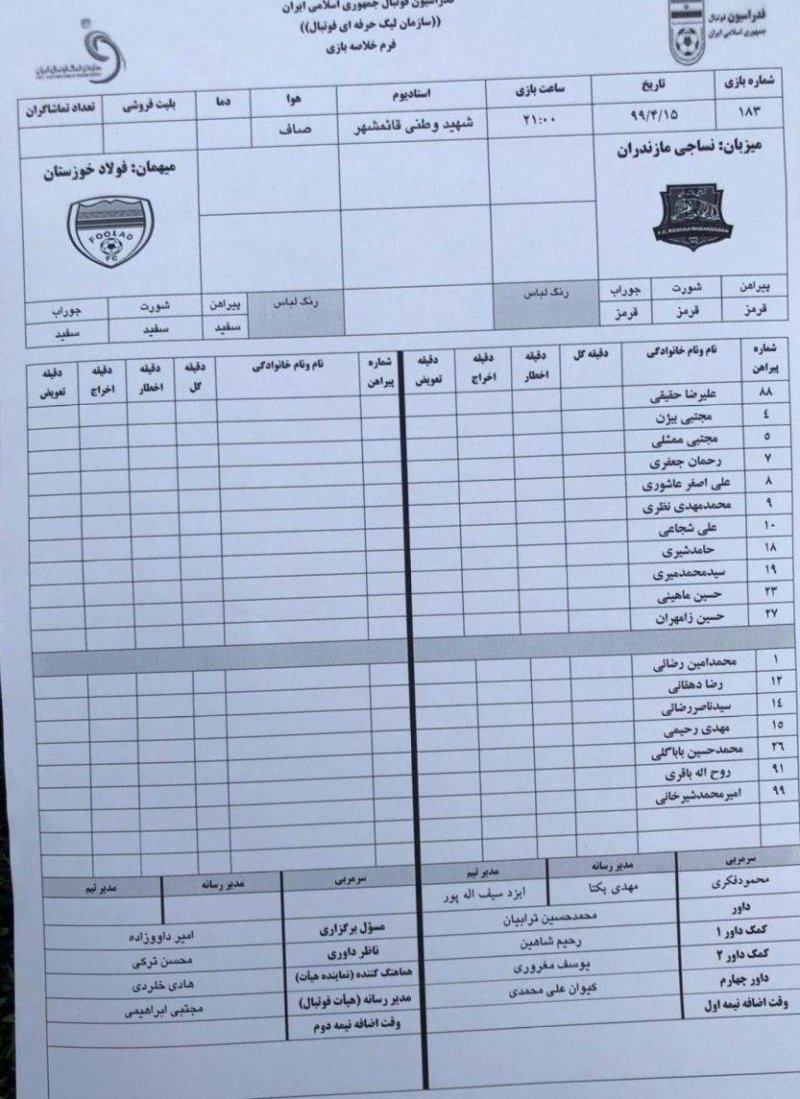 فدراسیون فوتبال جمهوری اسلامی ایران
((سازمان لیگ حرفه ای فوتبال))
فرم خلاصه بازی
فدراسیون فوتبال
جمهوری اسلامی ایران
شماره بازی تاریخ ساعت بازی استادیوم هوا دما بلیت فروشی تعداد تماشاگران
۱۸۳ ۹۹/۴/۱۵ ۲۱:۰۰ شهید وطنی قائمشهر صاف
میزبان: نساجی مازندران
میهمان: فولاد خوزستان
FOOLAD
FC
پیراهن شورت جوراب رنگ لباس رنگ لباس پیراهن شورت جوراب
قرمز قرمز قرمز سفید سفید سفید
شماره پیراهن نام ونام خانوادگی دقیقه گل دقیقه اخطار دقیقه اخراج دقیقه تعویض شماره پیراهن نام ونام خانوادگی دقیقه گل دقیقه اخطار دقیقه اخراج دقیقه تعویض
۸۸ علیرضا حقیقی
٤ مجتبی بیژن
٥ مجتبی ممشلی
۷ رحمان جعفری
۸ علی اصغر عاشوری
۹ محمدمهدی نظری
۱۰ علی شجاعی
۱۸ حامدشیری
۱۹ سیدمحمدمیری
۲۳ حسین ماهینی
۲۷ حسین زامهران
۱ محمدامین رضائی
۱۲ رضا دهقانی
۱٤ سیدناصررضائی
۱٥ مهدی رحیمی
۲٦ محمدحسین باباگلی
۹۱ روح اله باقری
۹۹ امیرمحمدشیرخانی
سرمربی مدیر رسانه مدیر تیم سرمربی مدیر رسانه مدیر تیم
محمودفکری مهدی یکتا ایزد سیف اله پور
داور محمدحسین ترابیان مسؤل برگزاری امیر داووزاده
کمک داور ۱ رحیم شاهین ناظر داوری محسن ترکی
کمک داور ۲ یوسف مغروری هماهنگ کننده (نماینده هیأت) هادی خلردی
داور چهارم کیوان علی محمدی مدیر رسانه (هیأت فوتبال) مجتبی ابراهیمی
وقت اضافه نیمه اول وقت اضافه نیمه دوم